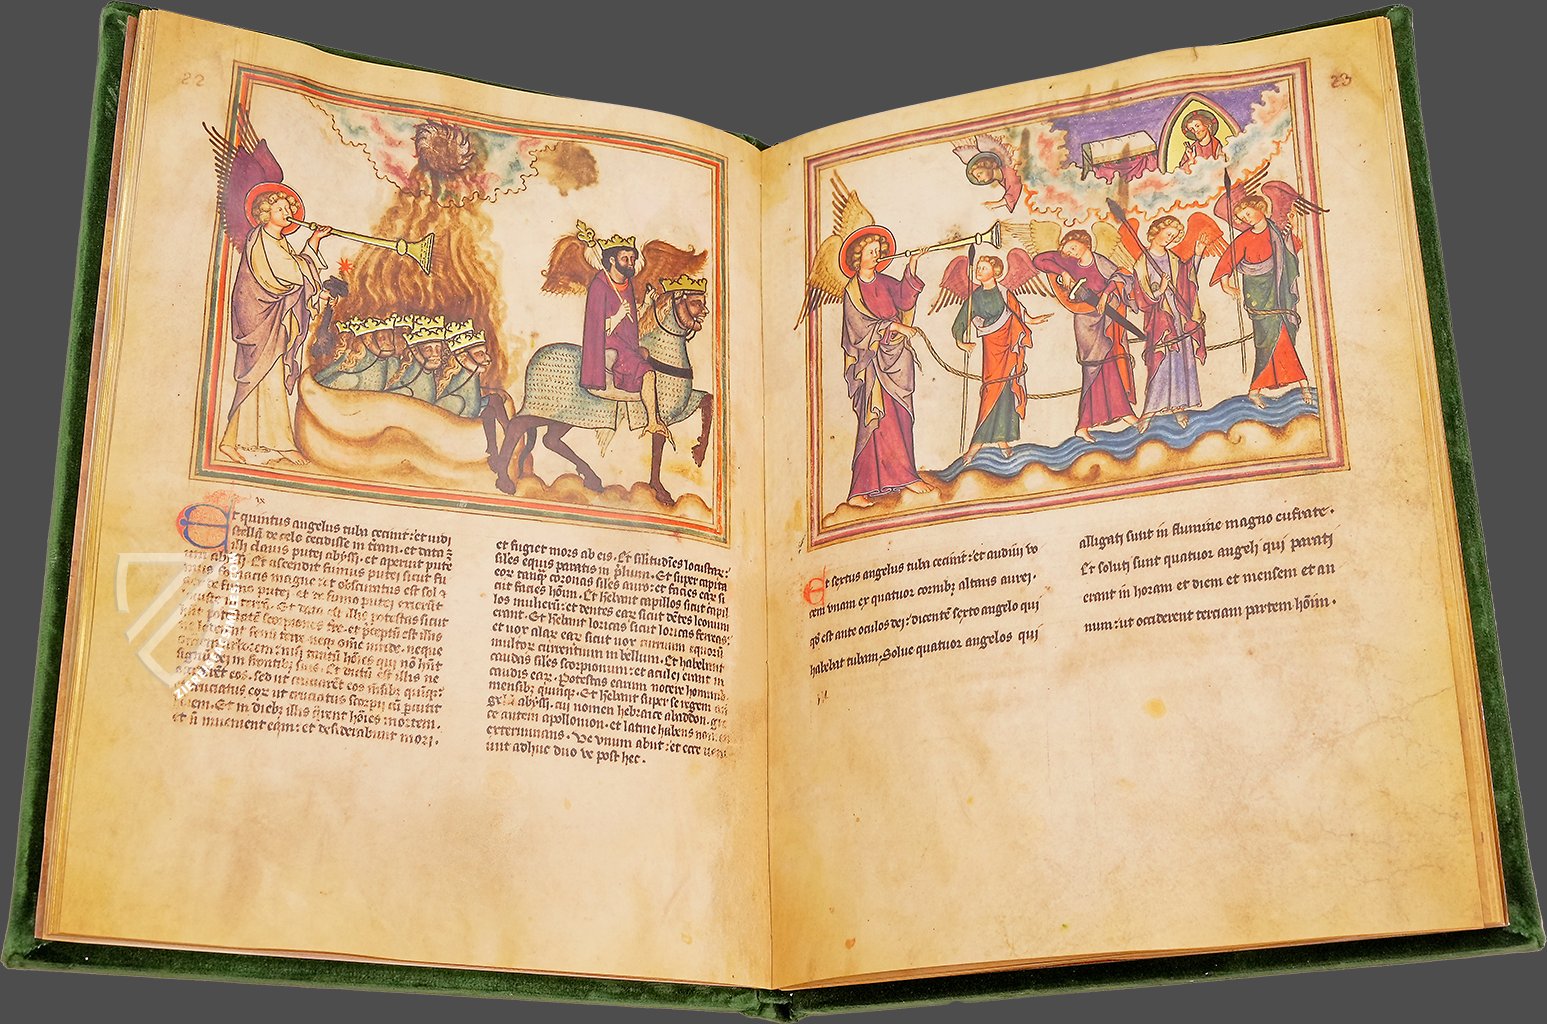 22
ix
Et quintus angelus tuba cecinit: et uidi
stellā de celo cecidisse in terram. et data ē
illi clauis putei abyssi. et aperuit pute
um abyssi. Et ascendit fumus putei sicut fu
mus fornacis magne: et obscuratus est sol &
aer de fumo putei et de fumo putei exierūt
locuste in terrā. Et data est illis potestas sicut
potestatē scorpiones tre. et p̄ceptū est illis
ne lederent fenū terre neq; omē uiride. neque
nisi tantū hōies qui nō hnt
signū dei in frontibus suis. Et datū est illis ne
eos. sed ut cruciarēt eos mēsibꝫ quinq;.
cruciatus eoꝝ ut cruciatus scorpii cū p̄cutit
hōiem. Et in diebꝫ illis q̄rent hōies mortem.
et nō inuenient eam: et desiderabunt mori.
et fugiet mors ab eis. Et silitudīes locustaꝝ:
siles equis paratis in p̄lium. Et super capita
eoꝝ tanq̄ꝫ coronas siles auro: et facies eaꝝ si
cut facies hōim. Et hēbant capillos sicut capil
los mulierū: et dentes eaꝝ sicut dētes leonum
erant. Et hēbant loricas sicut loricas ferreas:
et uox alaꝝ eaꝝ sicut uox curruum equorū
multoꝝ currentium in bellum. Et habebant
caudas siles scorpionum: et aculei erant in
caudis eaꝝ. Potestas earum nocere hominibꝫ
mensibꝫ quinq;. Et hēbant super se regem
angelū abyssi. cui nomen hebraice abadon. gre
ce autem apollonion. et latine habens nomen
exterminans. Ve unum abiit: et ecce ueni
unt adhuc duo ve post hec.
23
Et sextus angelus tuba cecinit: et audiui vo
cem vnam ex quatuor cornibꝫ altaris aurei.
qd̄ est ante oculos dei: dicentē sexto angelo qui
habebat tubam. Solue quatuor angelos qui
alligati sunt in flumine magno eufrate.
Et soluti sunt quatuor angeli qui parati
erant in horam et diem et mensem et an
num: ut occiderent terciam partem hōim.